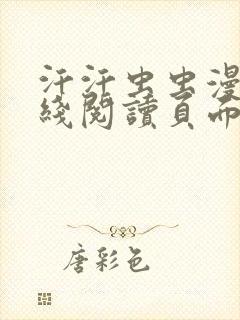 汗汗虫虫漫
綫閱讀頁面
唐彩色